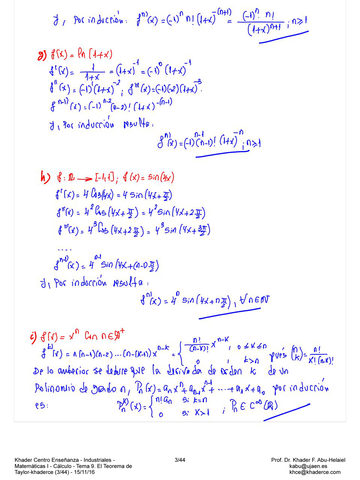 y, Por inducción: f^{n)}(x) = (-1)^n n! (1+x)^{-(n+1)} = \frac{(-1)^n n!}{(1+x)^{n+1}}; n≥1
g) f(x) = ln(1+x)
f'(x) = \frac{1}{1+x} = (1+x)^{-1} = (-1)^0 (1+x)^{-1}
f''(x) = (-1)^1 (1+x)^{-2}; f'''(x) = (-1)(-2)(1+x)^{-3}
f^{n-1)}(x) = (-1)^{n-2} (n-2)! (1+x)^{-(n-1)}
y, Por inducción resulta:
f^{n)}(x) = (-1)^{n-1} (n-1)! (1+x)^{-n}; n≥1
h) f: ℝ → [-1,1]; f(x) = sin(4x)
f'(x) = 4 Cos(4x) = 4 sin(4x+\frac{π}{2})
f''(x) = 4^2 Cos(4x+\frac{π}{2}) = 4^2 sin(4x+2\frac{π}{2})
f'''(x) = 4^3 Cos(4x+2\frac{π}{2}) = 4^3 sin(4x+\frac{3π}{2})
....
f^{n-1)}(x) = 4^{n-1} sin(4x+(n-1)\frac{π}{2})
y, Por inducción resulta:
f^{n)}(x) = 4^n sin(4x+n\frac{π}{2}), ∀n∈ℕ
i) f(x) = x^n Con n∈ℤ^+
f^{k)}(x) = n(n-1)(n-2)...(n-(k-1)) x^{n-k} = { \frac{n!}{(n-k)!} x^{n-k}, 0≤k≤n ; 0, k>n pués \binom{n}{k} = \frac{n!}{k!(n-k)!}
De lo anterior se deduce que la derivada de orden k de un
Polinomio de grado n, P_n(x) = a_n x^n + a_{n-1} x^{n-1} + ... + a_1 x + a_0 por inducción
es: P_n^{k)}(x) = { n! a_n si k=n ; 0 si k>n ; P_n ∈ C^∞(ℝ)
Khader Centro Enseñanza - Industriales -
Matemáticas I - Cálculo - Tema 9. El Teorema de
Taylor-khaderce (3/44) - 15/11/16
3/44
Prof. Dr. Khader F. Abu-Helaiel
kabu@ujaen.es
khce@khaderce.com